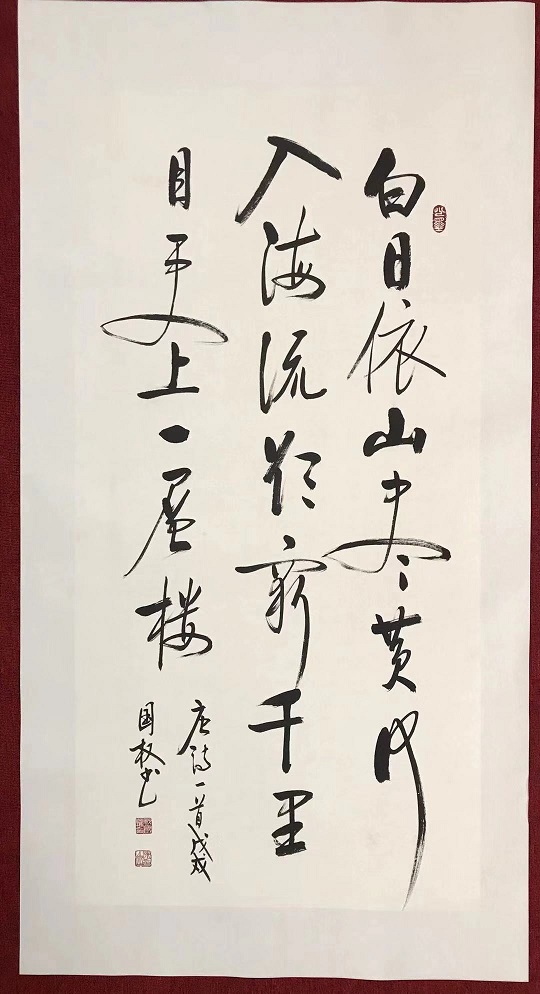 白日依山尽黄河
入海流欲穷千里
目更上一层楼
唐诗一首戊戌
国权书